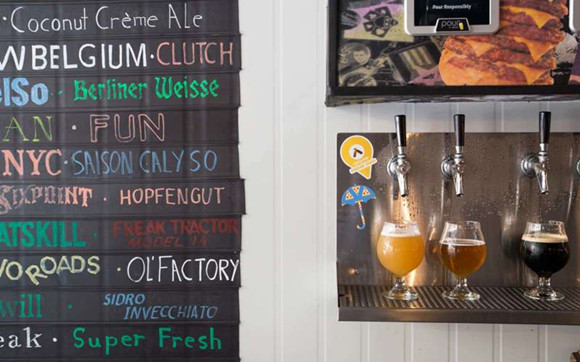 · Coconut Crème Ale
W BELGIUM · CLUTCH
elSo · Berliner Weisse
AN FUN
NYC · SAISON CALYSO
SIXPOINT · HOPFENGUT
ATSKILL · FREAK TRACTOR
MODEL 1A
WO ROADS · OL' FACTORY
will · SIDRO
INVECCHIATO
eak · Super Fresh
Pour Responsibly
pour